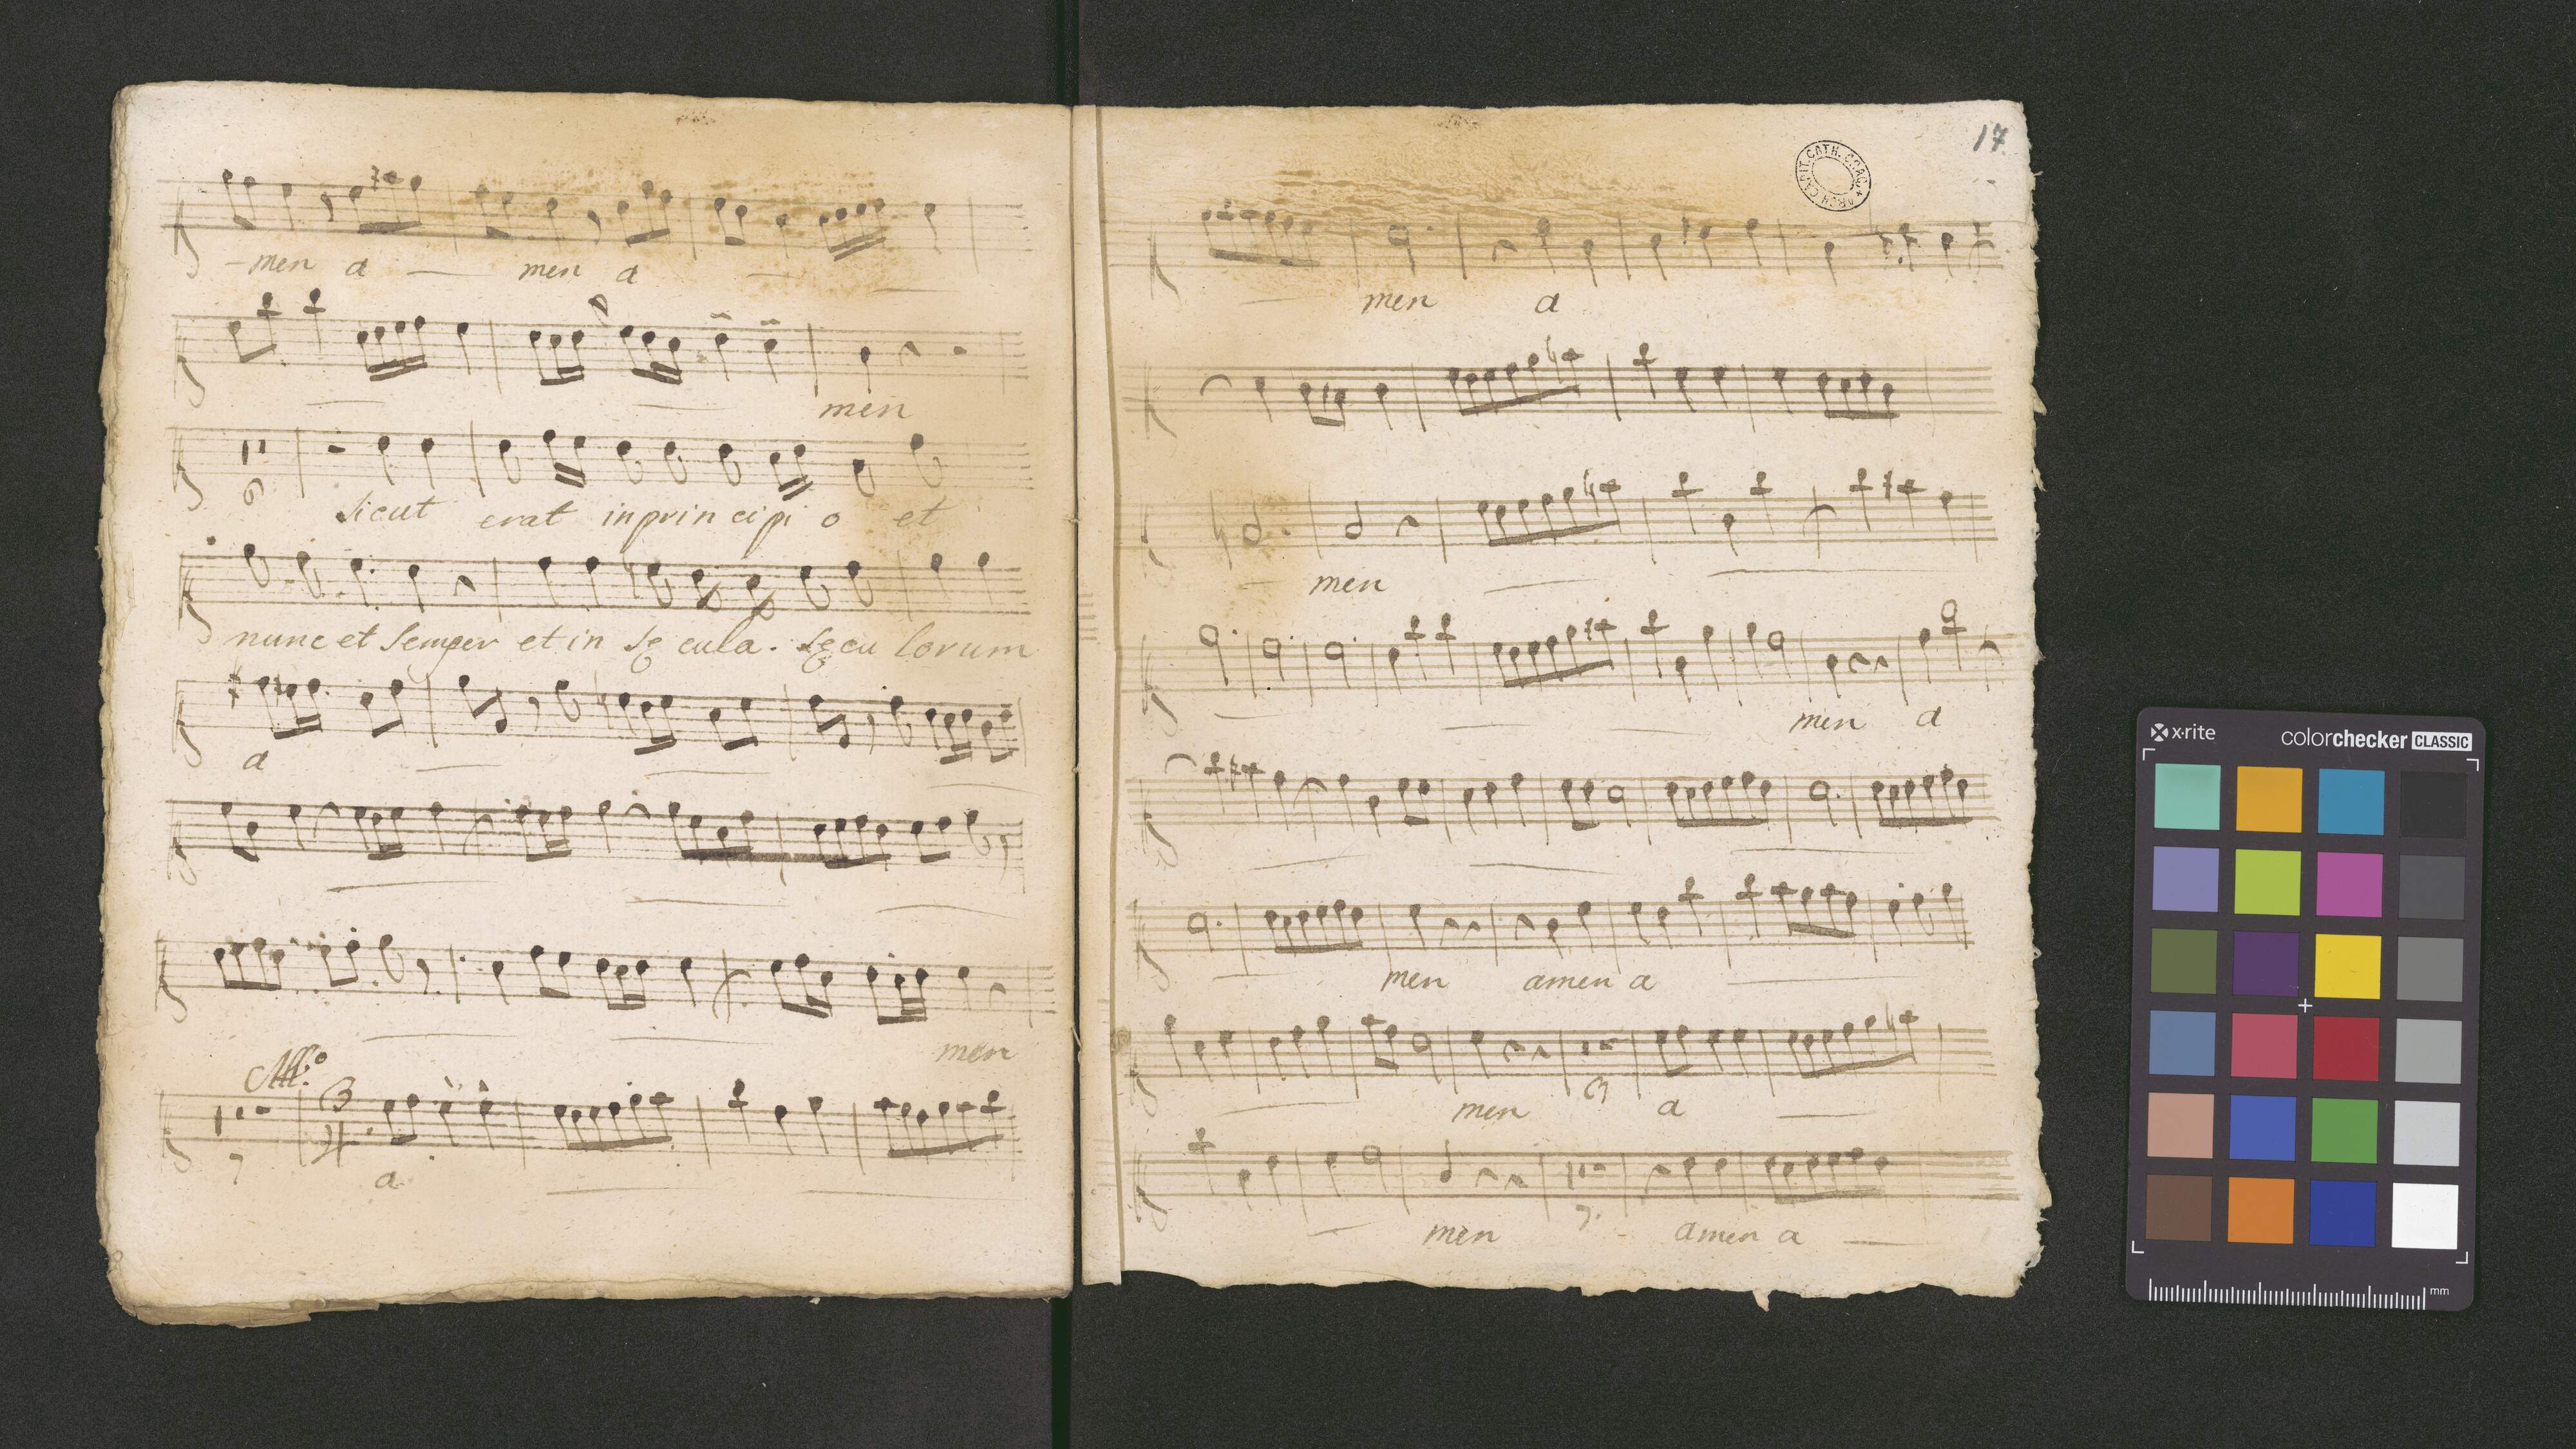 - men a — men a —
men
6
sicut erat in principi o et
nunc et semper et in sę cula. sęcu lorum
a
men
All.o
7 3 4 a
17
ARCH. CAPIT. CATH. CRAC.
men a
men
men a
men amen a
men 3 a
men 7. amen a
x-rite colorchecker CLASSIC
mm